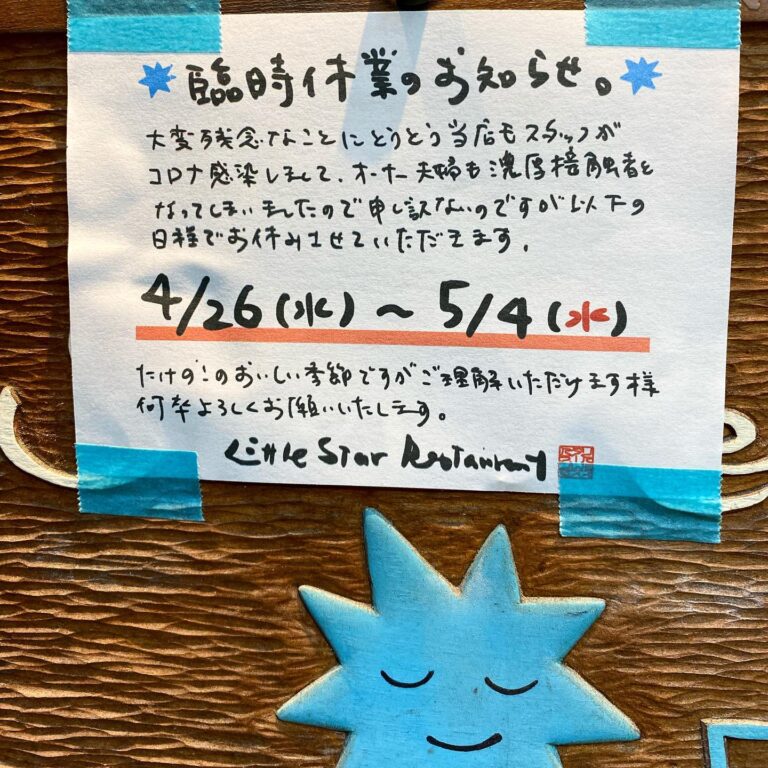 臨時休業のお知らせ。
大変残念なことにとうとう当店もスタッフが
コロナ感染しまして、オーナー夫婦も濃厚接触者と
なってしまいましたので申し訳ないのですが以下の
日程でお休みさせていただきます。
4/26(水)～5/4(水)
たけのこのおいしい季節ですがご理解いただけます様
何卒よろしくお願いいたします。
Little Star Restaurant